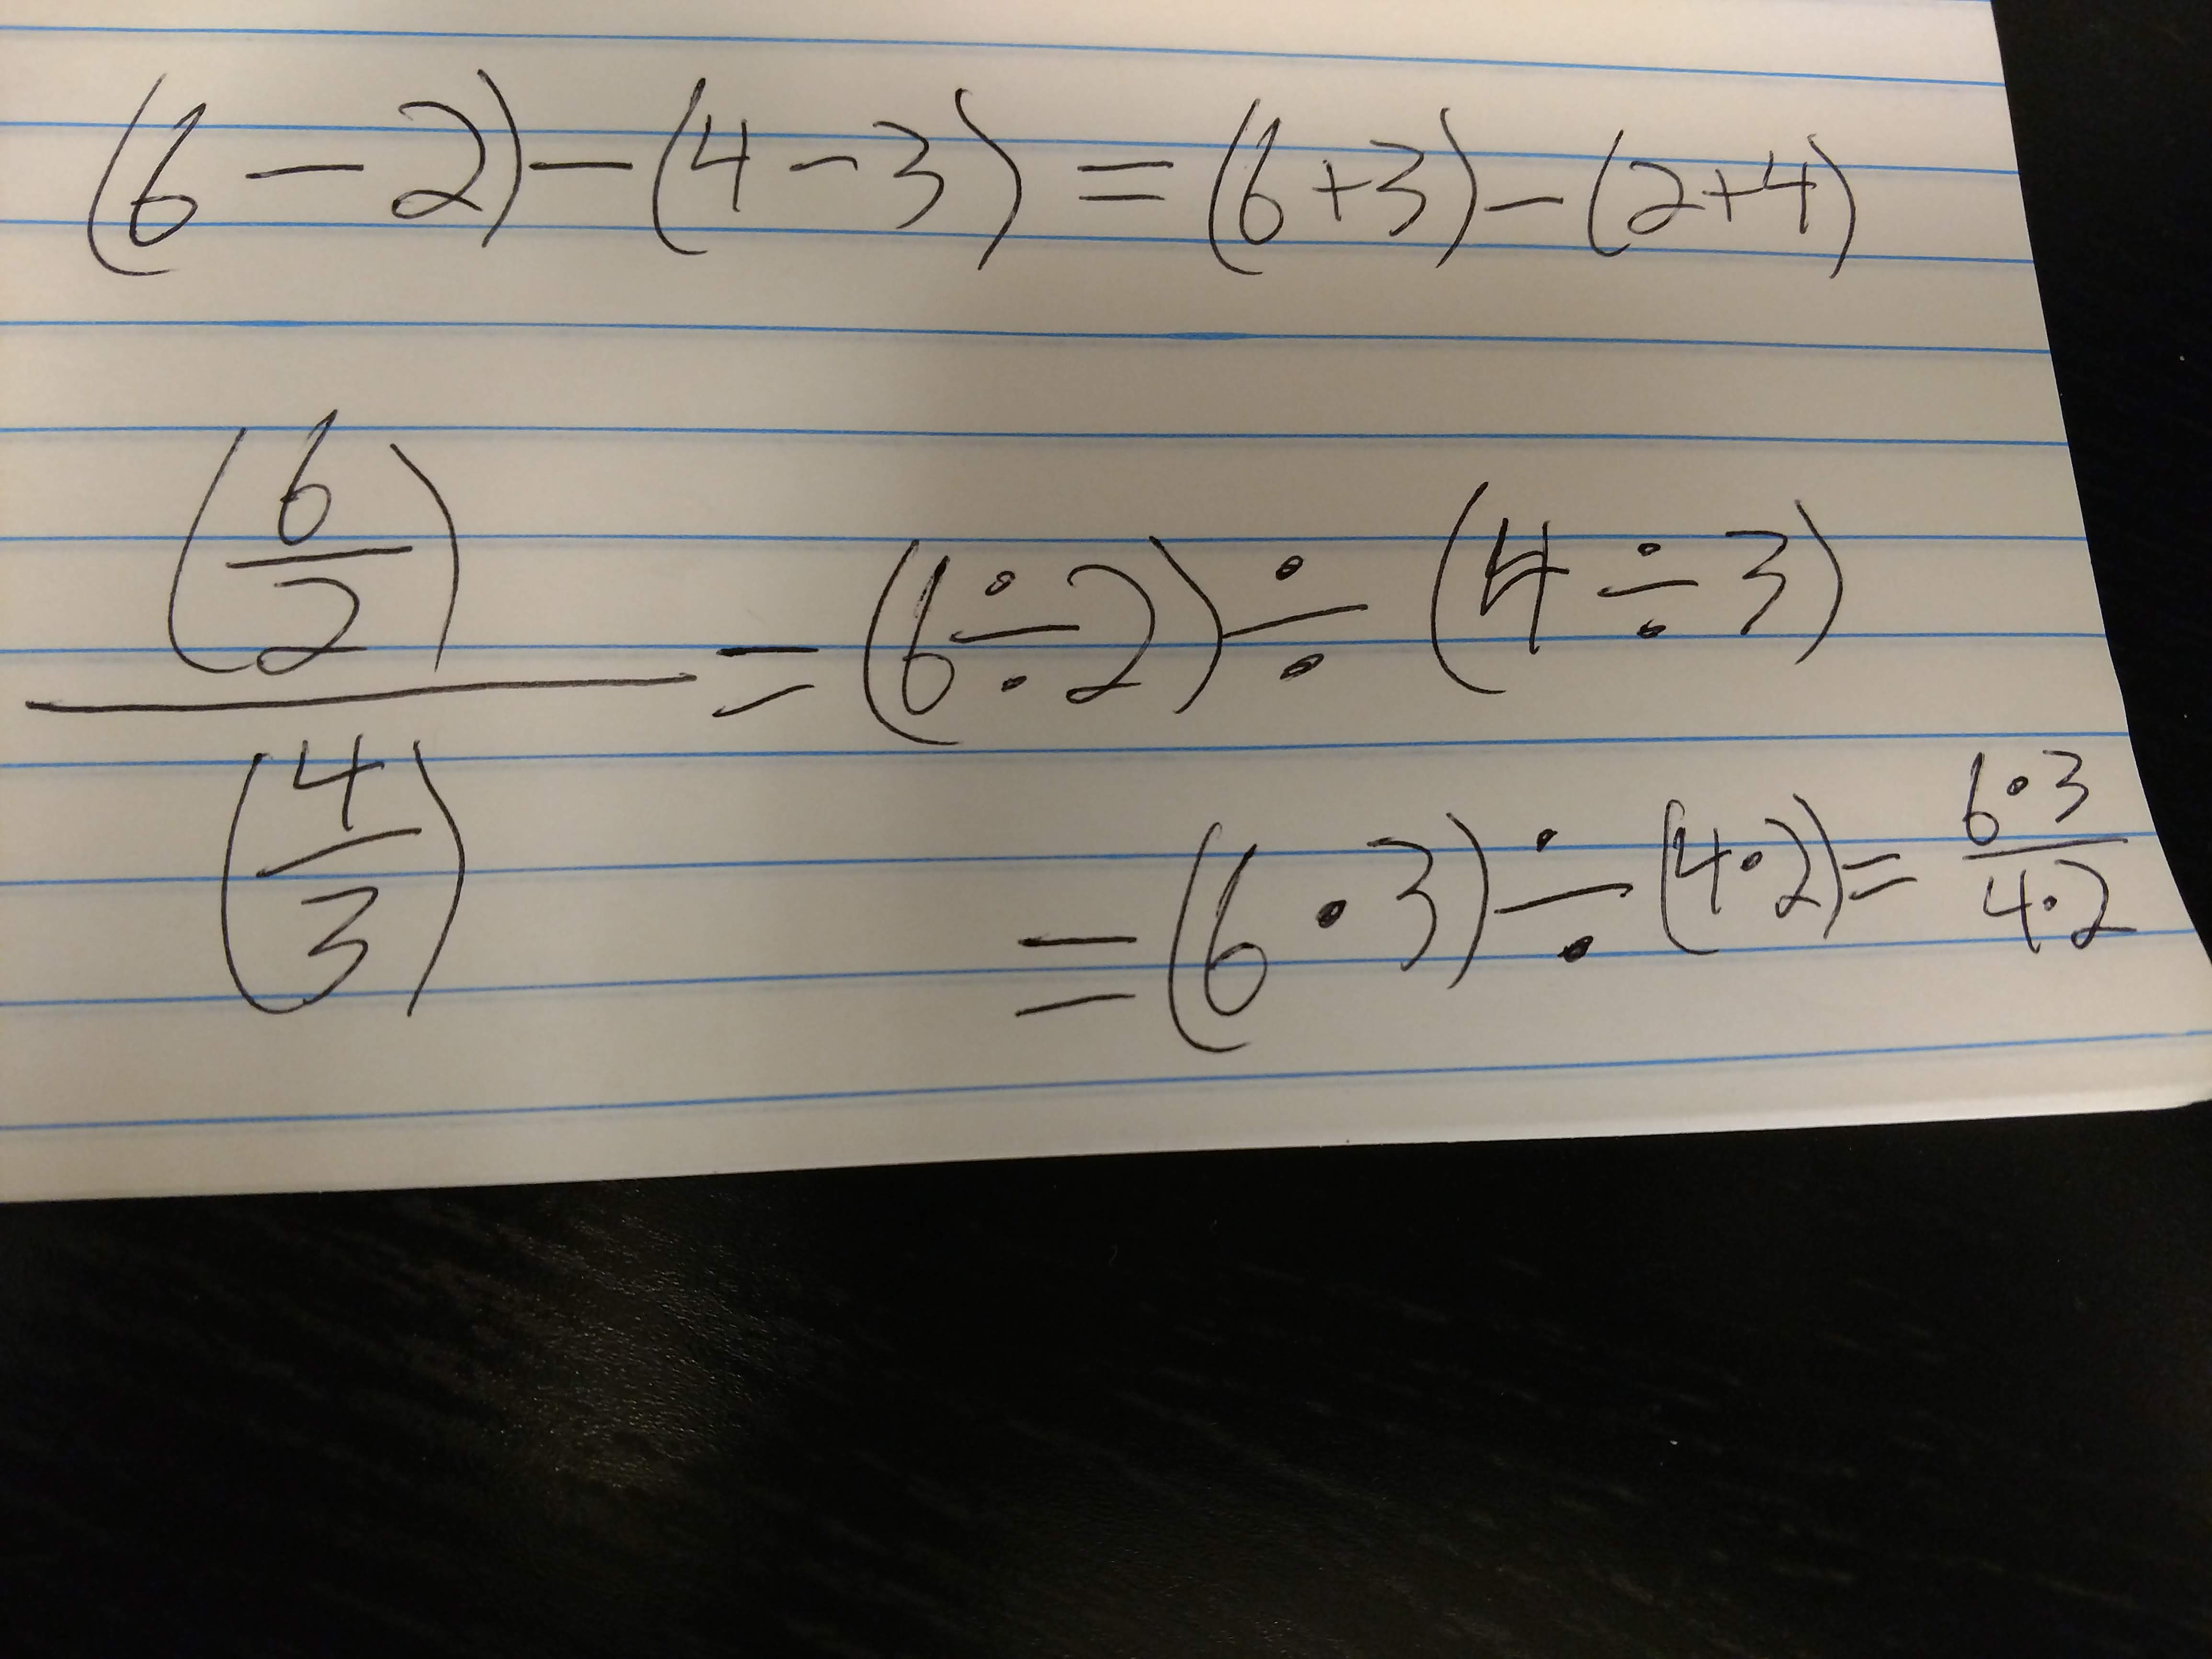 (6 − 2) − (4 − 3) = (6 + 3) − (2 + 4)
(6/2)/(4/3) = (6 ÷ 2) ÷ (4 ÷ 3)
= (6 · 3) ÷ (4 · 2) = 6 · 3/4 · 2